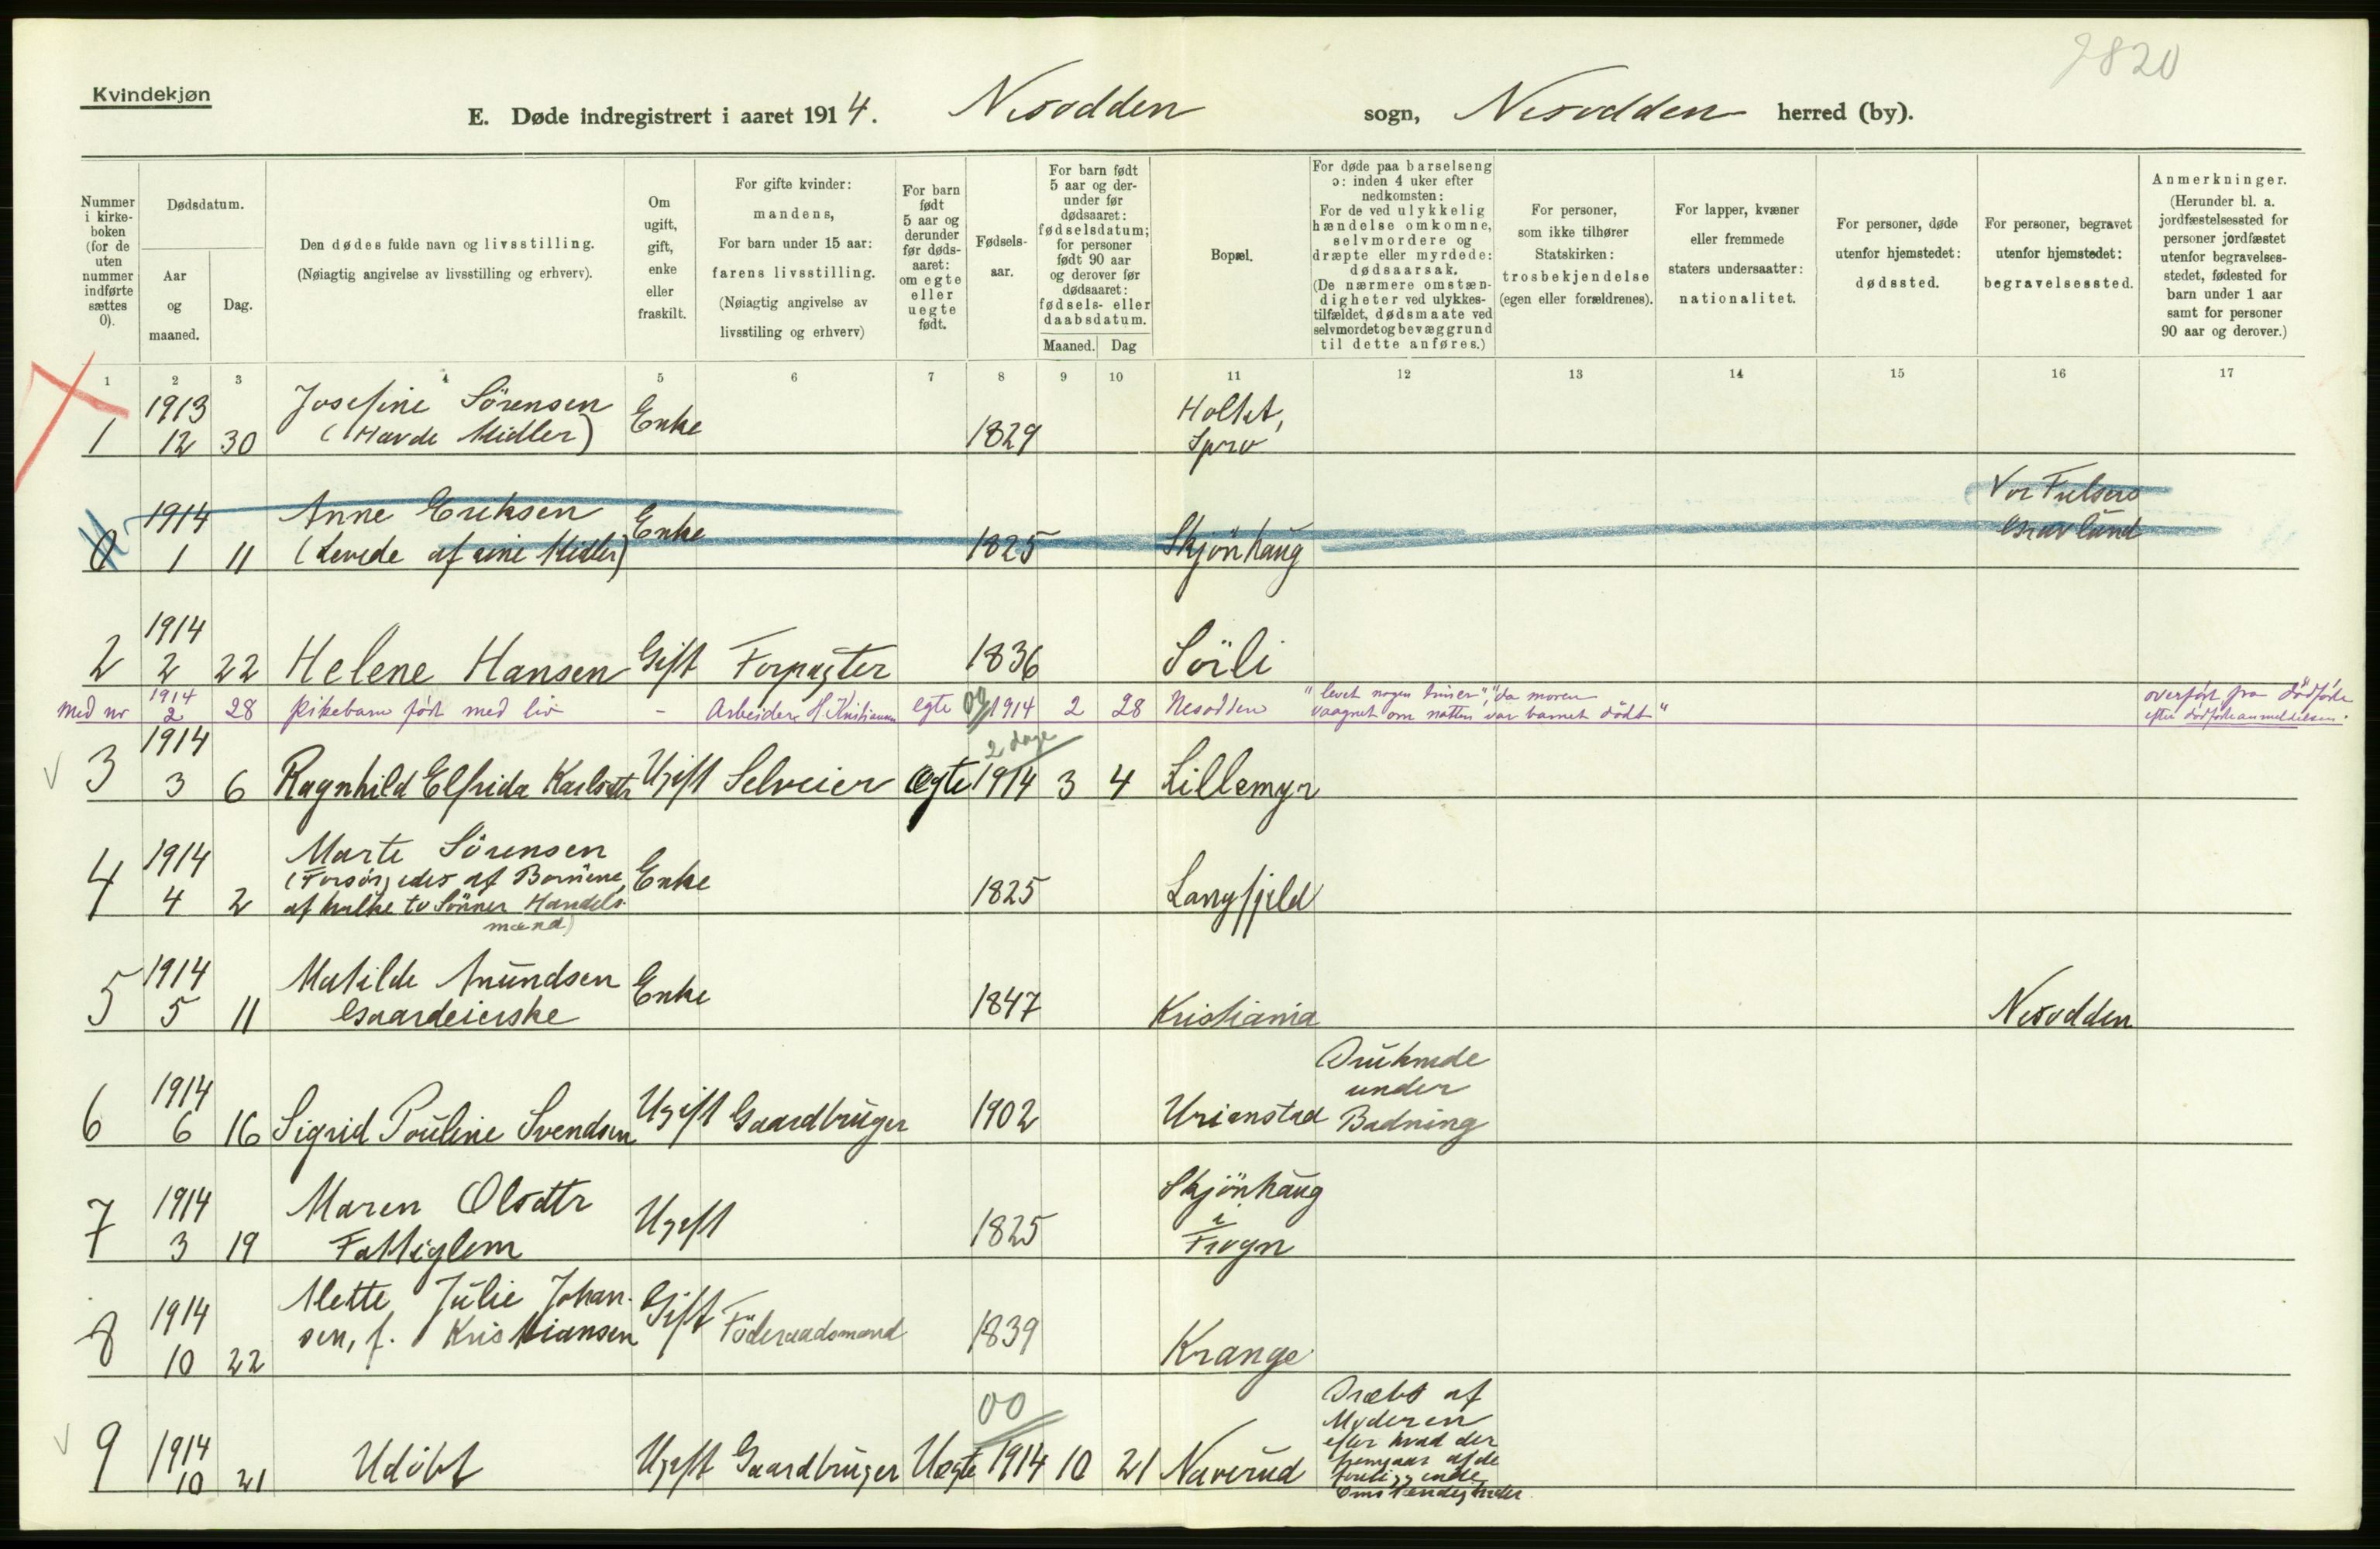 2820
Kvindekjøn
E. Døde indregistrert i aaret 1914. Nesodden sogn, Nesodden herred (by).
Nummer i kirke-boken (for de uten nummer indførte sættes 0).
Dødsdatum.
Aar og maaned.
Dag.
Den dødes fulde navn og livsstilling.
(Nøiagtig angivelse av livsstilling og erhverv).
Om ugift, gift, enke eller fraskilt.
For gifte kvinder:
mandens,
For barn under 15 aar:
farens livsstilling.
(Nøiagtig angivelse av
livsstiling og erhverv)
For barn født 5 aar og derunder før døds-aaret: om egte eller uegte født.
Fødsels-aar.
For barn født 5 aar og der-under før dødsaaret: fødselsdatum; for personer født 90 aar og derover før dødsaaret: fødsels- eller daabsdatum.
Maaned. Dag
Bopæl.
For døde paa barselseng
ɔ: inden 4 uker efter
nedkomsten:
For de ved ulykkelig
hændelse omkomne,
selvmordere og
dræpte eller myrdede:
dødsaarsak.
(De nærmere omstæn-
digheter ved ulykkes-
tilfældet, dødsmaate ved
selvmordet og bevæggrund
til dette anføres.)
For personer,
som ikke tilhører
Statskirken:
trosbekjendelse
(egen eller forældrenes).
For lapper, kvæner
eller fremmede
staters undersaatter:
nationalitet.
For personer, døde
utenfor hjemstedet:
dødssted.
For personer, begravet
utenfor hjemstedet:
begravelsessted.
Anmerkninger.
(Herunder bl. a.
jordfæstelsessted for
personer jordfæstet
utenfor begravelses-
stedet, fødested for
barn under 1 aar
samt for personer
90 aar og derover.)
1 2 3 4 5 6 7 8 9 10 11 12 13 14 15 16 17
1913 Josefine Sörensen Enke Holtet,
1 12 30 (Havde Midler) 1829 Spro
1914 Anne Eriksen Enke Vor Frelsers
0 1 11 (Levede af sine Midler) 1825 Skjönhaug Gravlund
1914
2 2 22 Helene Hansen Gift Forpagter 1836 Söili
1914 "levet nogen timer", "da moren overført fra dödfödte
med nr 2 28 pikebarn født med liv - Arbeider H. Kristiansen egte 00 1914 2 28 Nesodden vaagnet om natten var barnet dödt" efter dödfödteanmeldelsen.
1914 2 dage
3 3 6 Ragnhild Elfrida Karlsdtr Ugift Selveier Ægte 1914 3 4 Lillemyr
1914 Marte Sörensen
(Forsörgedes af Börnene, Enke
4 4 2 af hvilke to Sönner Handels- 1825 Langfjeld
mænd)
1914 Matilde Amundsen Enke
5 5 11 Gaardeierske 1847 Kristiania Nesodden
Druknede
1914 under
6 6 16 Sigrid Pouline Svendsen Ugift Gaardbruger 1902 Urianstad Badning
1914 Maren Olsdtr Ugift Skjönhaug
7 3 19 Fattiglem 1825 i Frogn
1914 Mette Julie Johan-
8 10 22 sen, f. Kristiansen Gift Föderaadsmand 1839 Krange
00 Dræbt af
Moderen
efter hvad der
9 1914 10 21 Udöbt Ugift Gaardbruger Uægte 1914 10 21 Naverud fremgaar af de
foreliggende
Omstændigheder